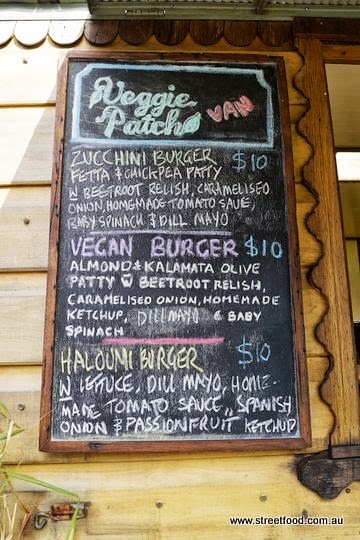 Veggie
Patch VAN
ZUCCHINI BURGER $10
FETTA & CHICKPEA PATTY
W BEETROOT RELISH, CARAMELISED
ONION, HOMEMADE TOMATO SAUE,
BABY SPINACH & DILL MAYO
VEGAN BURGER $10
ALMOND & KALAMATA OLIVE
PATTY W BEETROOT RELISH,
CARAMELISED ONION, HOMEMADE
KETCHUP, DILL MAYO & BABY
SPINACH
HALOUMI BURGER $10
W LETTUCE, DILL MAYO, HOME-
MADE TOMATO SAUCE, SPANISH
ONION & PASSIONFRUIT KETCHUP
www.streetfood.com.au